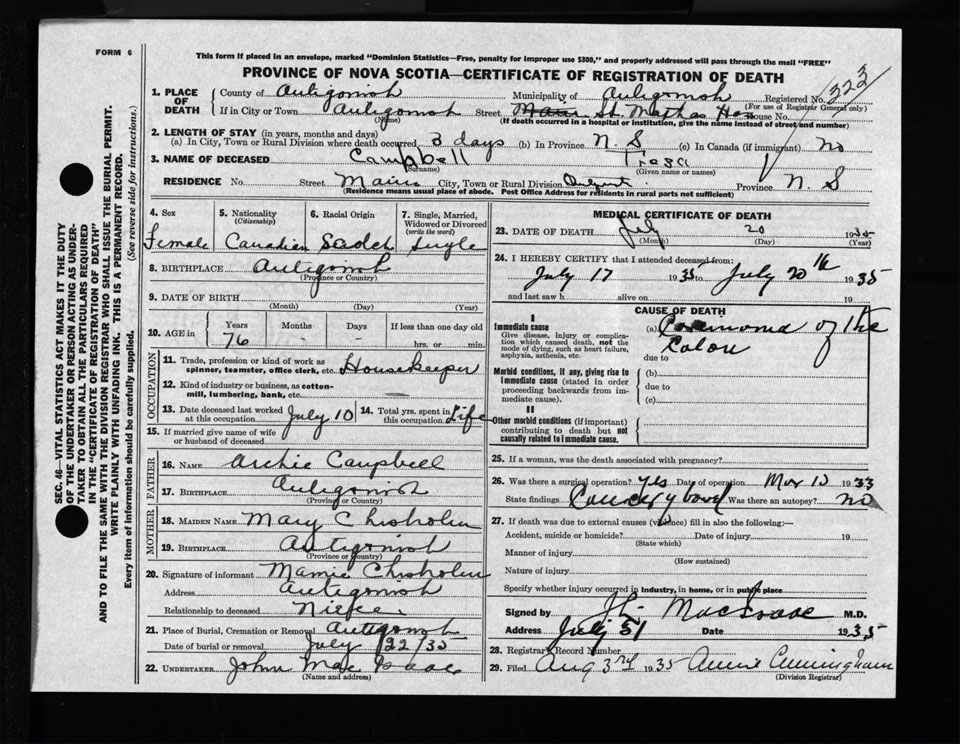 FORM 6
This form if placed in an envelope, marked "Dominion Statistics—Free, penalty for improper use $300," and properly addressed will pass through the mail "FREE"
PROVINCE OF NOVA SCOTIA—CERTIFICATE OF REGISTRATION OF DEATH
SEC. 46—VITAL STATISTICS ACT MAKES IT THE DUTY
OF THE UNDERTAKER OR PERSON ACTING AS UNDER-
TAKER TO OBTAIN ALL THE PARTICULARS REQUIRED
IN THE "CERTIFICATE OF REGISTRATION OF DEATH"
AND TO FILE THE SAME WITH THE DIVISION REGISTRAR WHO SHALL ISSUE THE BURIAL PERMIT.
WRITE PLAINLY WITH UNFADING INK. THIS IS A PERMANENT RECORD.
Every item of information should be carefully supplied. (See reverse side for instructions.)
1. PLACE OF DEATH County of Antigonish Municipality of Antigonish Registered No. 323
(For use of Registrar General only)
If in City or Town Antigonish Street Main St. Marthas Hos House No.
(Name) (If death occurred in a hospital or institution, give the name instead of street and number)
2. LENGTH OF STAY (in years, months and days)
(a) In City, Town or Rural Division where death occurred 3 days (b) In Province N. S (c) In Canada (if immigrant) no
3. NAME OF DECEASED Campbell
(Surname) (Given name or names)
RESIDENCE No. Street Main City, Town or Rural Division Province N. S
(Residence means usual place of abode. Post Office Address for residents in rural parts not sufficient)
4. Sex Female
5. Nationality (Citizenship) Canadian
6. Racial Origin Scotch
7. Single, Married, Widowed or Divorced (write the word) Single
8. BIRTHPLACE Antigonish
(Province or Country)
9. DATE OF BIRTH
(Month) (Day) (Year)
10. AGE in Years 76 Months - Days - If less than one day old hrs. or min.
OCCUPATION
11. Trade, profession or kind of work as spinner, teamster, office clerk, etc. Housekeeper
12. Kind of industry or business, as cotton-mill, lumbering, bank, etc. —
13. Date deceased last worked at this occupation July 10
14. Total yrs. spent in this occupation Life
15. If married give name of wife or husband of deceased
FATHER
16. NAME Archie Campbell
17. BIRTHPLACE Antigonish
(Province or Country)
MOTHER
18. MAIDEN NAME Mary Chisholm
19. BIRTHPLACE Antigonish
(Province or Country)
20. Signature of informant Mamie Chisholm
Address Antigonish
Relationship to deceased Niece
21. Place of Burial, Cremation or Removal Antigonish
Date of burial or removal July 22/35
22. UNDERTAKER John MacIsaac
(Name and address)
MEDICAL CERTIFICATE OF DEATH
23. DATE OF DEATH July 20 1935
(Month) (Day) (Year)
24. I HEREBY CERTIFY that I attended deceased from:
July 17 1935 to July 20th 1935
and last saw h alive on 19
CAUSE OF DEATH
I
Immediate cause
Give disease, injury or complication which caused death, not the mode of dying, such as heart failure, asphyxia, asthenia, etc.
(a) Carcinoma of the
Colon
due to
Morbid conditions, if any, giving rise to immediate cause (stated in order proceeding backwards from immediate cause).
(b)
due to
(c)
II
Other morbid conditions (if important) contributing to death but not causally related to immediate cause.
25. If a woman, was the death associated with pregnancy?
26. Was there a surgical operation? Yes Date of operation Mar 10 1933
State findings Cancer of bowel Was there an autopsy? no
27. If death was due to external causes (violence) fill in also the following:—
Accident, suicide or homicide? Date of injury 19
(State which)
Manner of injury
(How sustained)
Nature of injury
Specify whether injury occurred in industry, in home, or in public place
Signed by MacIsaac M.D.
Address July 31 Date 1935
28. Registrar's Record Number
29. Filed Aug 3rd 1935 Annie Cunningham
(Division Registrar)